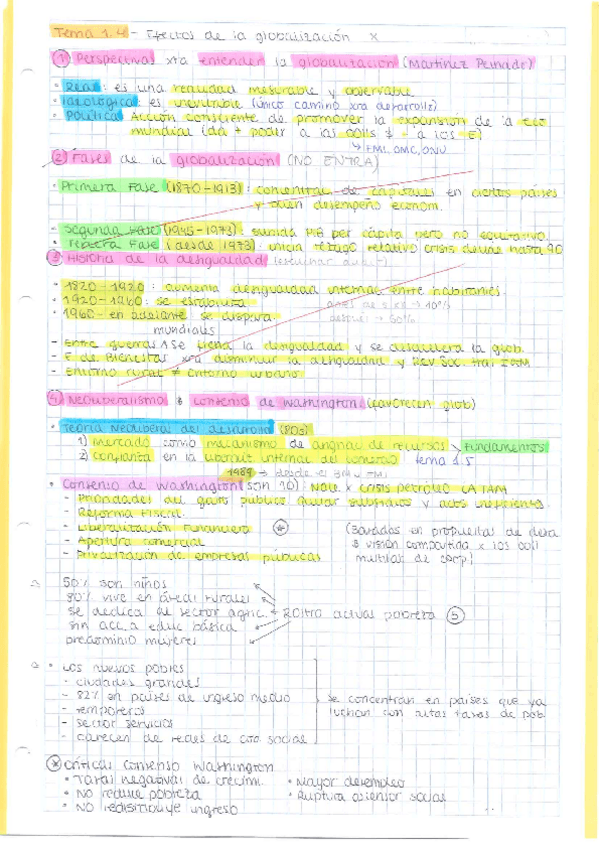 Tema 1.4 - Efectos de la globalización x
① Perspectivas xra entender la globalización (Martínez Peinado)
· Real: es una realidad mesurable y observable
· Ideológica: es inevitable (único camino xra desarrollo)
· Política Acción consciente de promover la expansión de la eco
mundial (da + poder a las y - a los E)
↳ FMI, OMC, ONU
② Fases de la globalización (NO ENTRA)
· Primera Fase (1870-1913): de capitales en ciertos países
y buen desempeño económ.
- Segunda Fase (1945-1973): subida PIB per cápita pero no equitativo.
· Tercera Fase (desde 1973): inicia relativo crisis deuda hasta 90
③ Historia de la desigualdad
· 1820-1920: aumenta desigualdad interna entre habitantes.
· 1920-1960: se estabiliza
· 1960- en adelante se dispara.
→ 10%
después → 60%
mundiales
- Entre guerras se la desigualdad y se la glob.
- E. de Bienestar xra disminuir la desigualdad y
- Entorno rural ≠ entorno urbano
④ Neoliberalismo y consenso de Washington (favorecen glob)
· Teoría Neoliberal del desarrollo (80s)
1) mercado como mecanismo de de recursos
2) confianza en la interna del
Fundamentos
tema 1.5
1989 → desde el
· Consenso de Washington (son 10): Nace x crisis petróleo LATAM
- Prioridades del gasto público: quitar subsidios y
- Reforma Fiscal.
- Liberalización Financiera
- Apertura comercial
- Privatización de empresas públicas
(Basadas en propuestas de
y visión compartida x los
de coop.)
50% son niños
80% vive en áreas rurales
se dedica de sector agric.
sin acc. a educ básica
predominio mujeres
actual pobreza ⑤
· Los nuevos pobres
- ciudades grandes
- 82% en países de ingreso medio
- temporeros
- sector servicios
- carecen de redes de social
se concentran en países que ya
luchan con altas tasas de pob.
Críticas Consenso Washington
· Tasas negativas de crecimi.
· NO reduce pobreza
· NO redistribuye ingreso
· Mayor desempleo
· Ruptura ascensor social